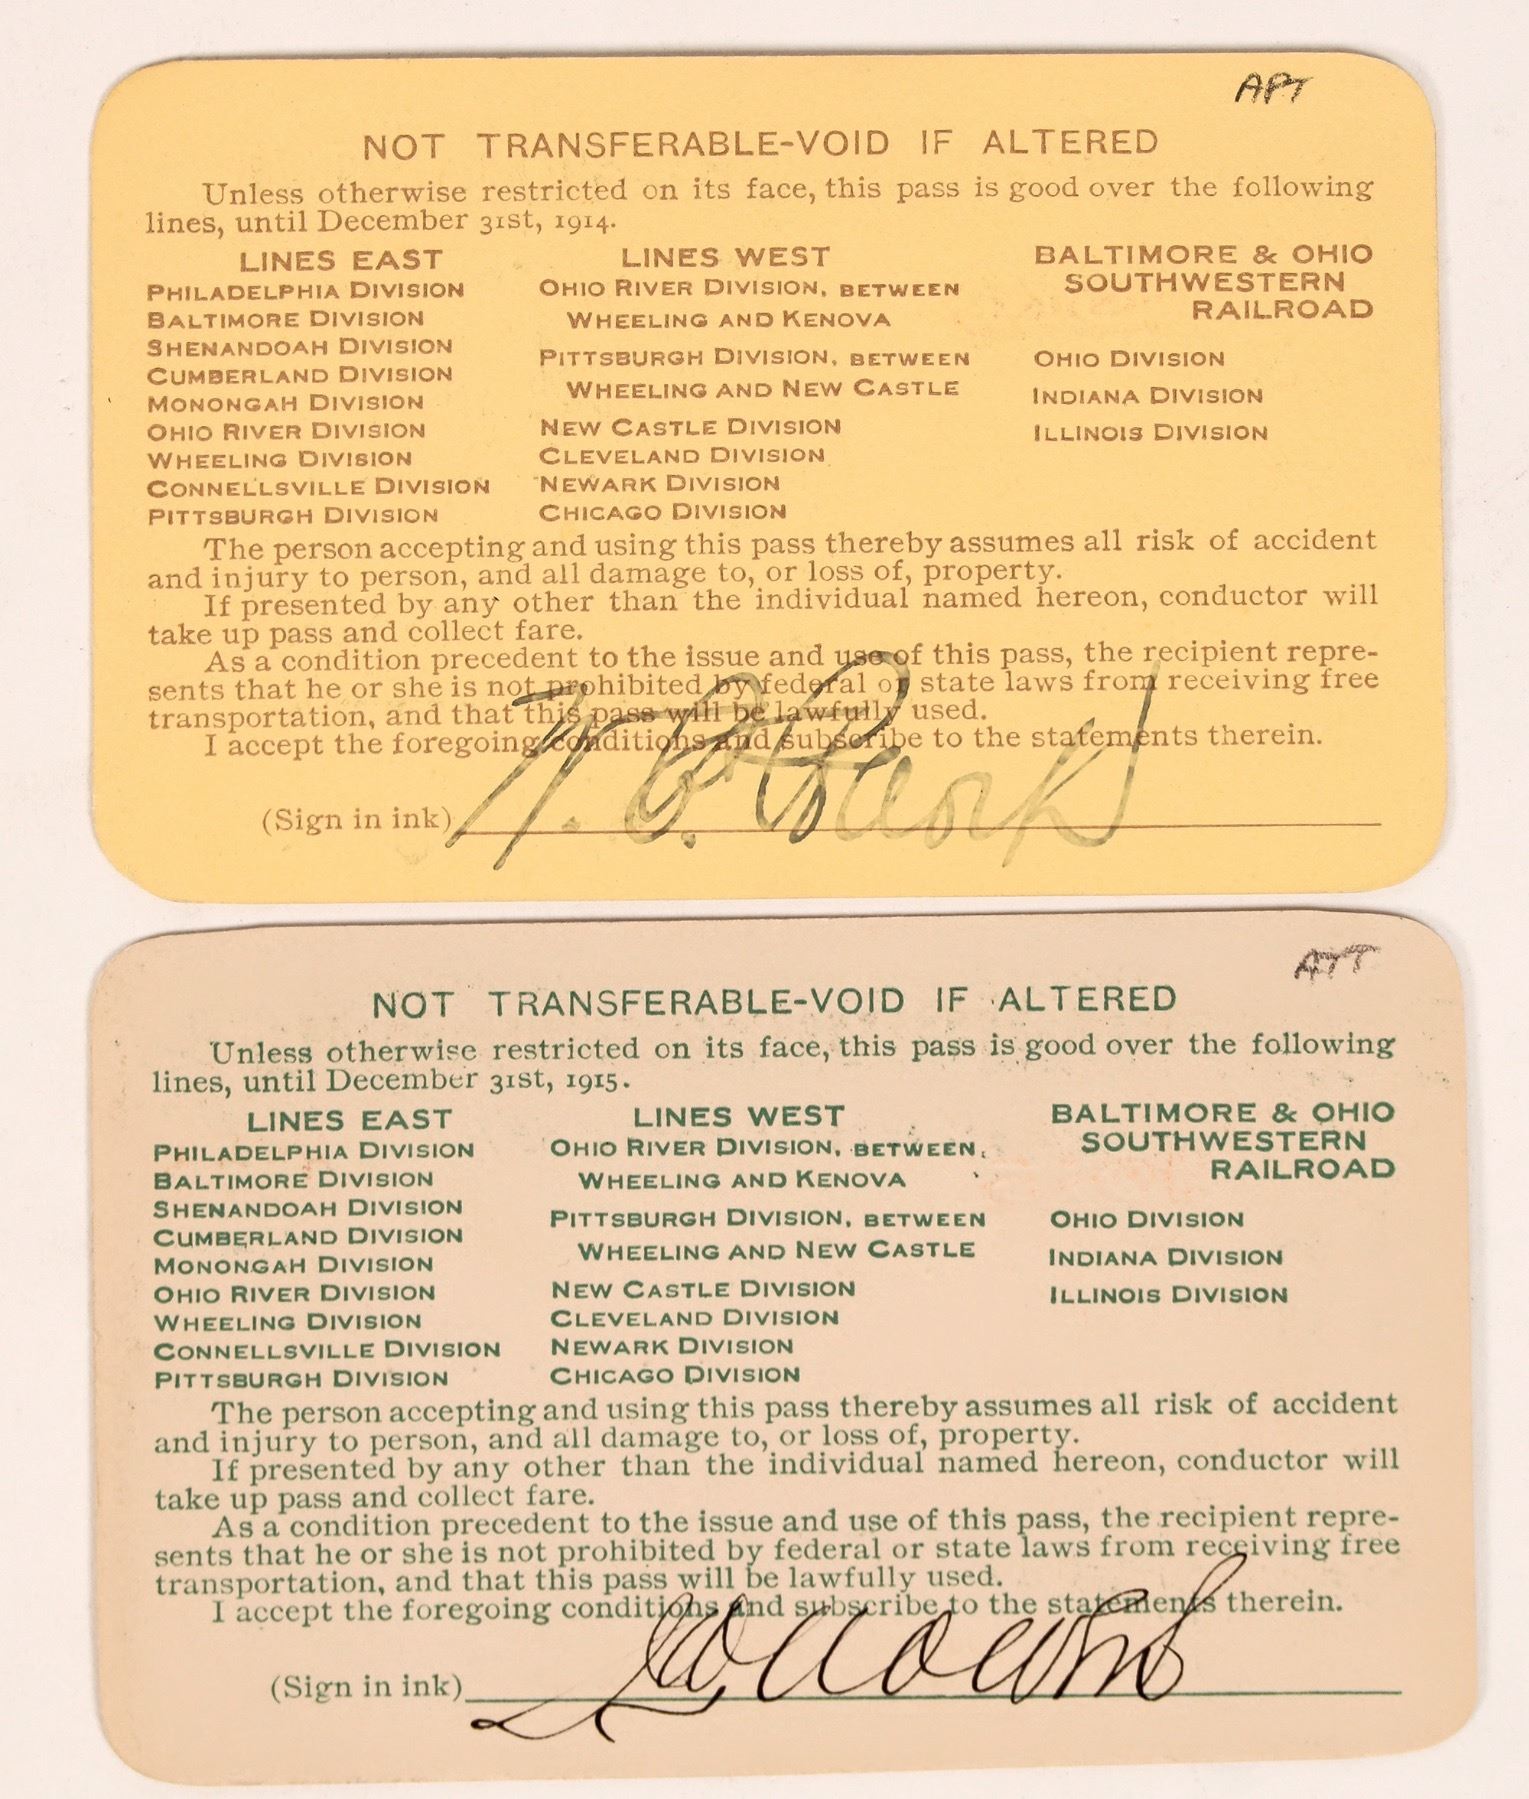 APT
NOT TRANSFERABLE-VOID IF ALTERED
Unless otherwise restricted on its face, this pass is good over the following
lines, until December 31st, 1914.
LINES EAST
PHILADELPHIA DIVISION
BALTIMORE DIVISION
SHENANDOAH DIVISION
CUMBERLAND DIVISION
MONONGAH DIVISION
OHIO RIVER DIVISION
WHEELING DIVISION
CONNELLSVILLE DIVISION
PITTSBURGH DIVISION
LINES WEST
OHIO RIVER DIVISION, BETWEEN
WHEELING AND KENOVA
PITTSBURGH DIVISION, BETWEEN
WHEELING AND NEW CASTLE
NEW CASTLE DIVISION
CLEVELAND DIVISION
NEWARK DIVISION
CHICAGO DIVISION
BALTIMORE & OHIO
SOUTHWESTERN
RAILROAD
OHIO DIVISION
INDIANA DIVISION
ILLINOIS DIVISION
The person accepting and using this pass thereby assumes all risk of accident
and injury to person, and all damage to, or loss of, property.
If presented by any other than the individual named hereon, conductor will
take up pass and collect fare.
As a condition precedent to the issue and use of this pass, the recipient repre-
sents that he or she is not prohibited by federal or state laws from receiving free
transportation, and that this pass will be lawfully used.
I accept the foregoing conditions and subscribe to the statements therein.
(Sign in ink)
NOT TRANSFERABLE-VOID IF ALTERED
Unless otherwise restricted on its face, this pass is good over the following
lines, until December 31st, 1915.
LINES EAST
PHILADELPHIA DIVISION
BALTIMORE DIVISION
SHENANDOAH DIVISION
CUMBERLAND DIVISION
MONONGAH DIVISION
OHIO RIVER DIVISION
WHEELING DIVISION
CONNELLSVILLE DIVISION
PITTSBURGH DIVISION
LINES WEST
OHIO RIVER DIVISION, BETWEEN
WHEELING AND KENOVA
PITTSBURGH DIVISION, BETWEEN
WHEELING AND NEW CASTLE
NEW CASTLE DIVISION
CLEVELAND DIVISION
NEWARK DIVISION
CHICAGO DIVISION
BALTIMORE & OHIO
SOUTHWESTERN
RAILROAD
OHIO DIVISION
INDIANA DIVISION
ILLINOIS DIVISION
The person accepting and using this pass thereby assumes all risk of accident
and injury to person, and all damage to, or loss of, property.
If presented by any other than the individual named hereon, conductor will
take up pass and collect fare.
As a condition precedent to the issue and use of this pass, the recipient repre-
sents that he or she is not prohibited by federal or state laws from receiving free
transportation, and that this pass will be lawfully used.
I accept the foregoing conditions and subscribe to the statements therein.
(Sign in ink)